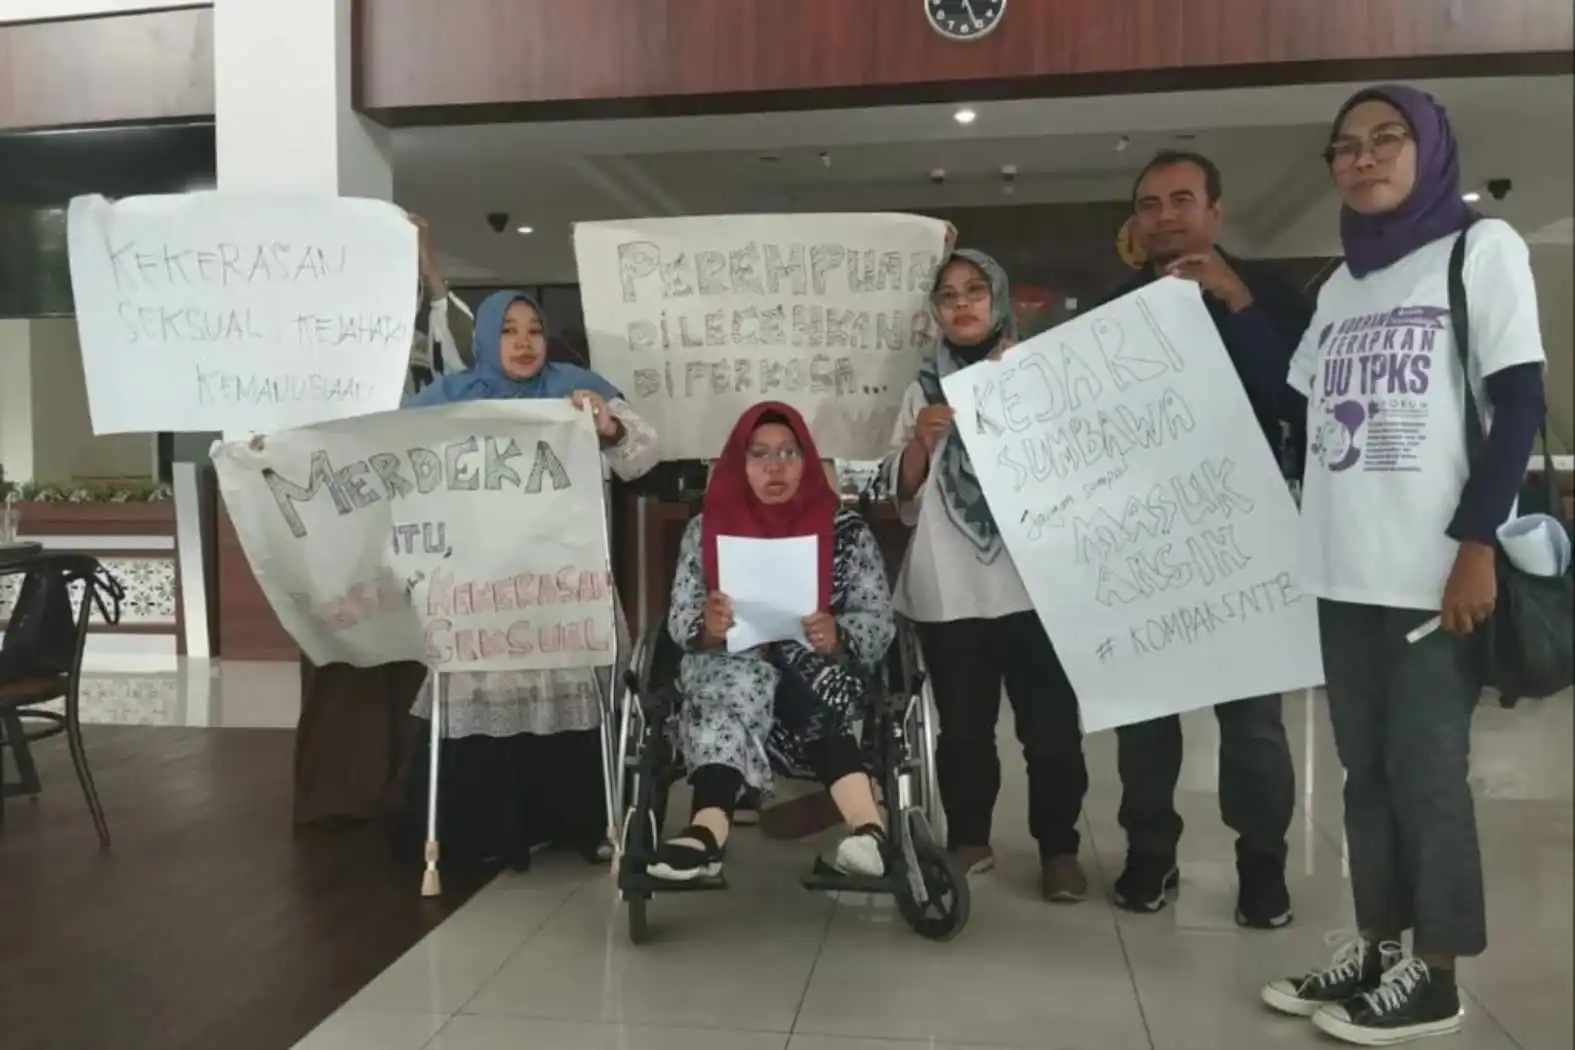 KEKERASAN
SEKSUAL KEJAHATAN
KEMANUSIAAN
MERDEKA
ITU,
KEKERASAN
SEKSUAL
PEREMPUAN
DILECEHKAN &
DIPERKOSA...
KEJARI
SUMBAWA
Jangan sampai
MASUK
ANGIN
# KOMPAKSNTB
TERAPKAN
UU TPKS
FORUM